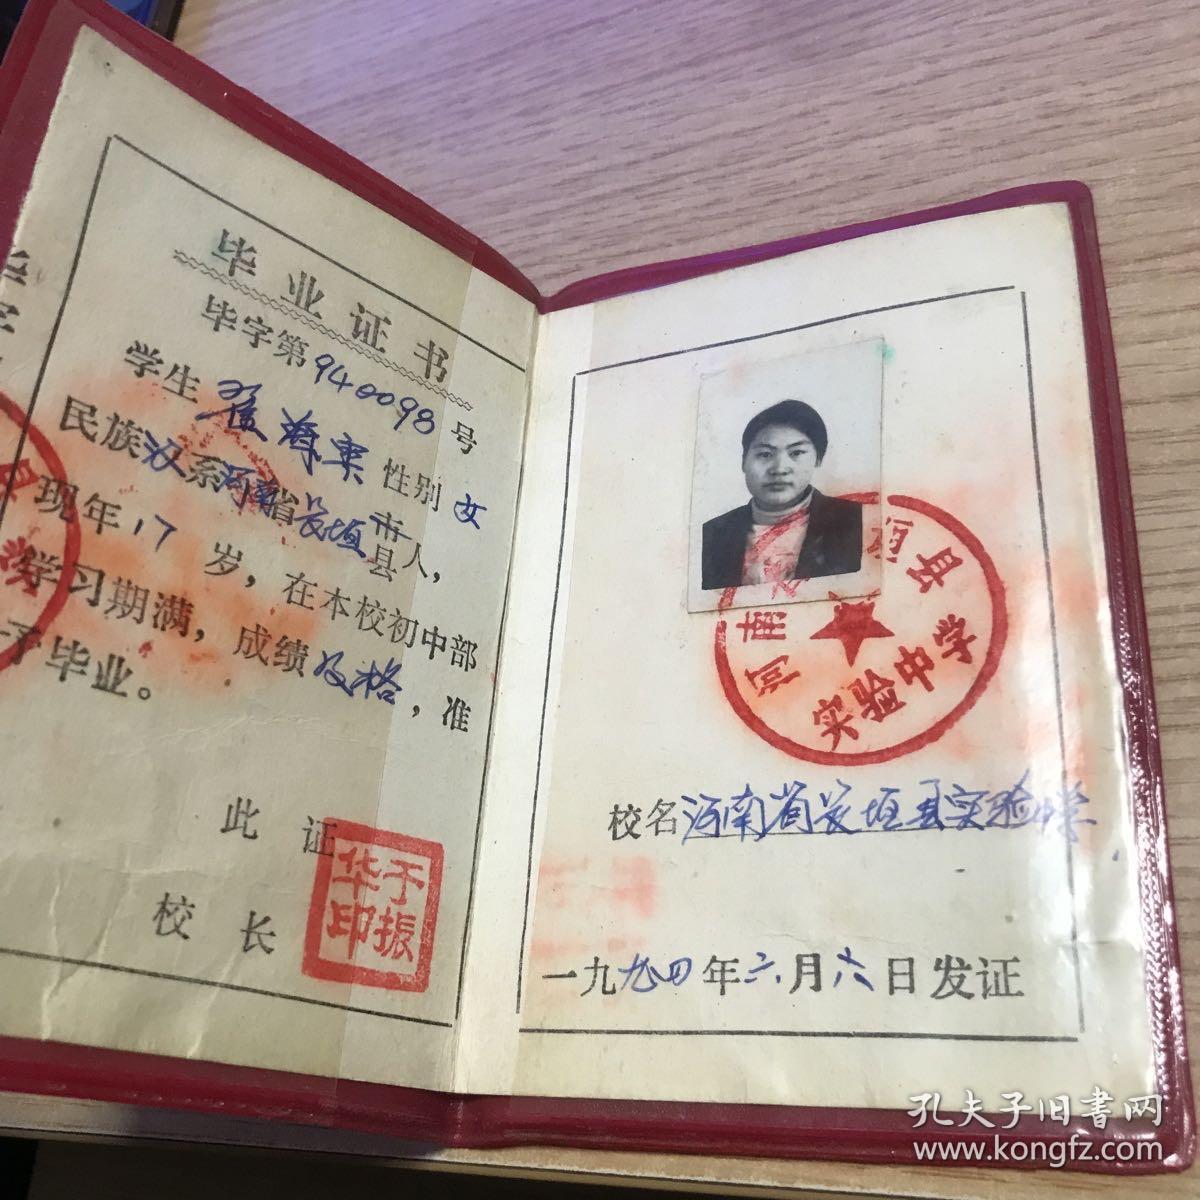 毕业证书
毕字第940098号
学生 翟海荣 性别 女
民族汉系河南省长垣市县人，
现年17岁，在本校初中部
学习期满，成绩及格，准
予毕业。
此证
校长
于振华印
河南省长垣县
实验中学
校名 河南省长垣县实验中学
一九九四年六月六日发证
孔夫子旧书网
www.kongfz.com